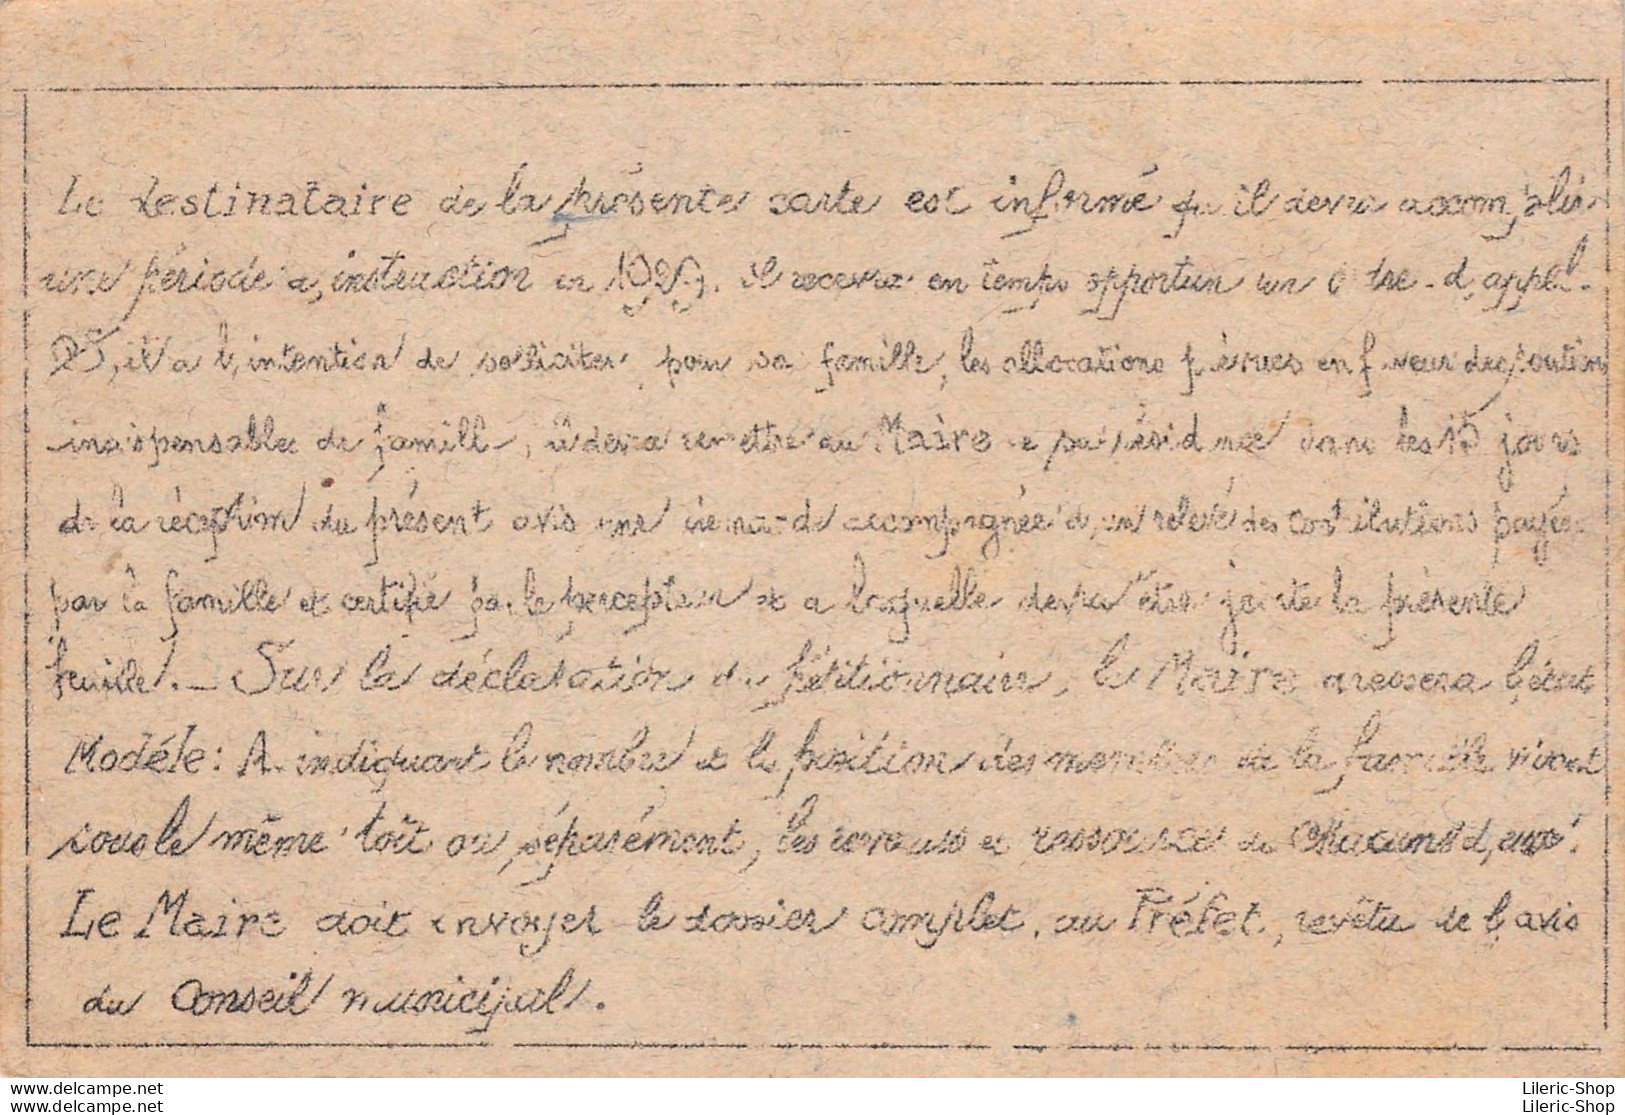 Le destinataire de la présente carte est informé qu'il devra accomplir
une période d'instruction en 1929. il recevra en temps opportun un Ordre d'appel.
S'il a l'intention de solliciter pour sa famille, les allocations prévues en faveur des soutiens
indispensables de famille, il devra remettre au Maire de sa résidence dans les 15 jours
de la réception du présent avis une demande accompagnée d'un relevé des contributions payées
par la famille et certifié par le percepteur et à laquelle devra être jointe la présente
feuille. _ Sur la déclaration du pétitionnaire, le Maire dressera l'état
Modèle: A. indiquant le nombre et la position des membres de la famille vivant
sous le même toit ou séparément, les revenus et ressources de chacun d'eux.
Le Maire doit envoyer le dossier complet, au Préfet, revêtu de l'avis
du Conseil municipal.
delcampe.net
delcampe.net
Lileric-Shop
Lileric-Shop